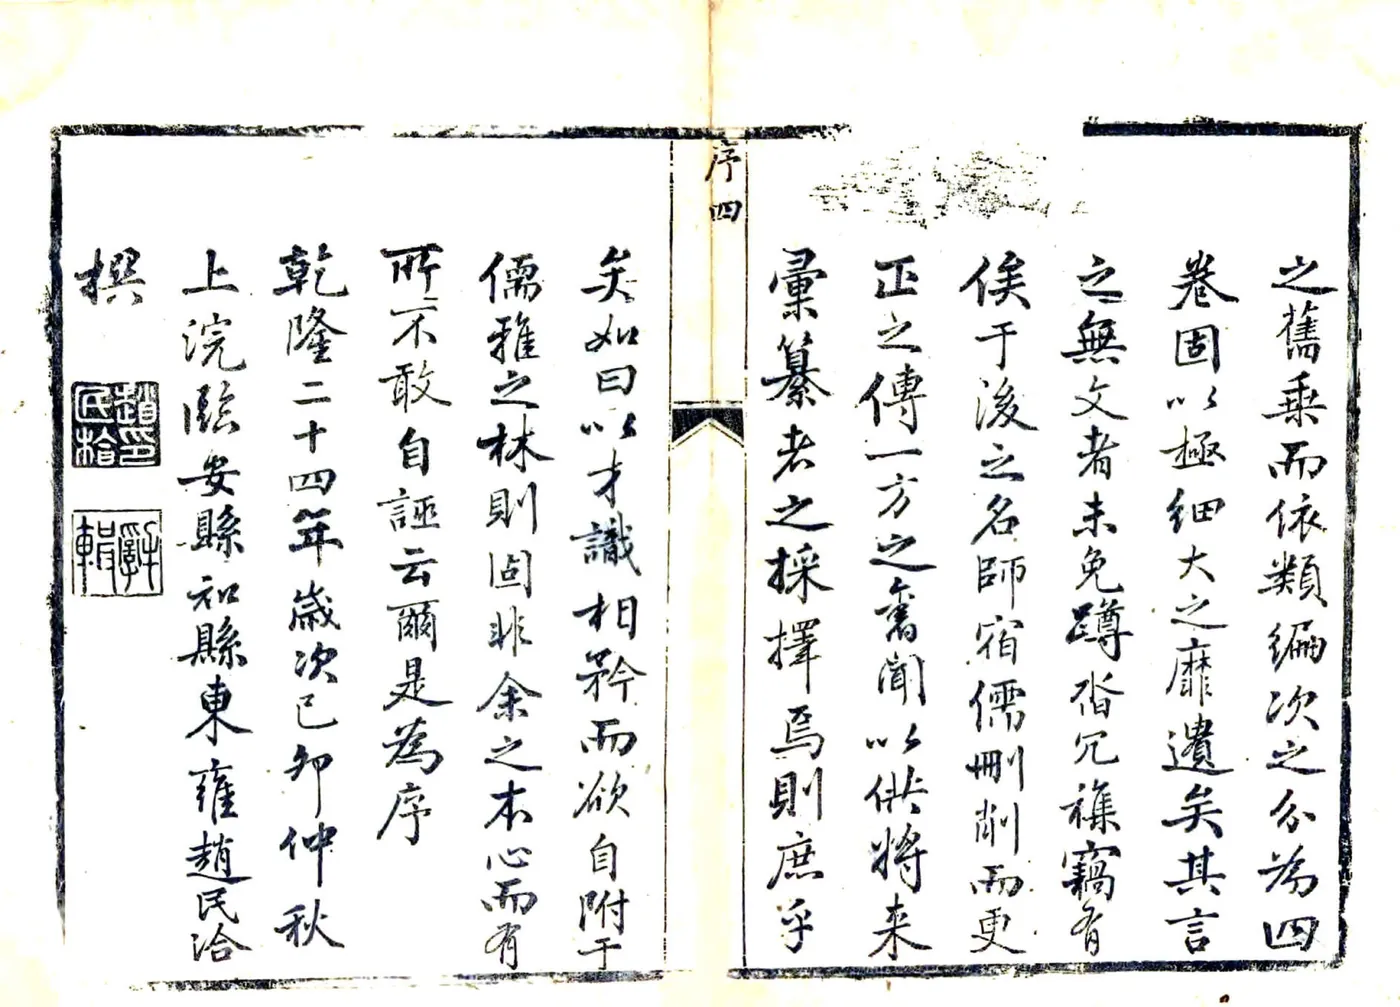 之舊乗而依類編次之分為四
卷固以極細大之靡遺矣其言
之無文者未免蹲沓冗襍竊有
俟于後之名師宿儒刪削而更
正之傳一方之舊聞以供將来
彙纂者之採擇焉則庶乎
序四
矣如曰以才識相矜而欲自附于
儒雅之林則固非余之本心而有
所不敢自誣云爾是為序
乾隆二十四年歲次己卯仲秋
上浣臨安縣知縣東雍趙民洽
撰
趙民洽印